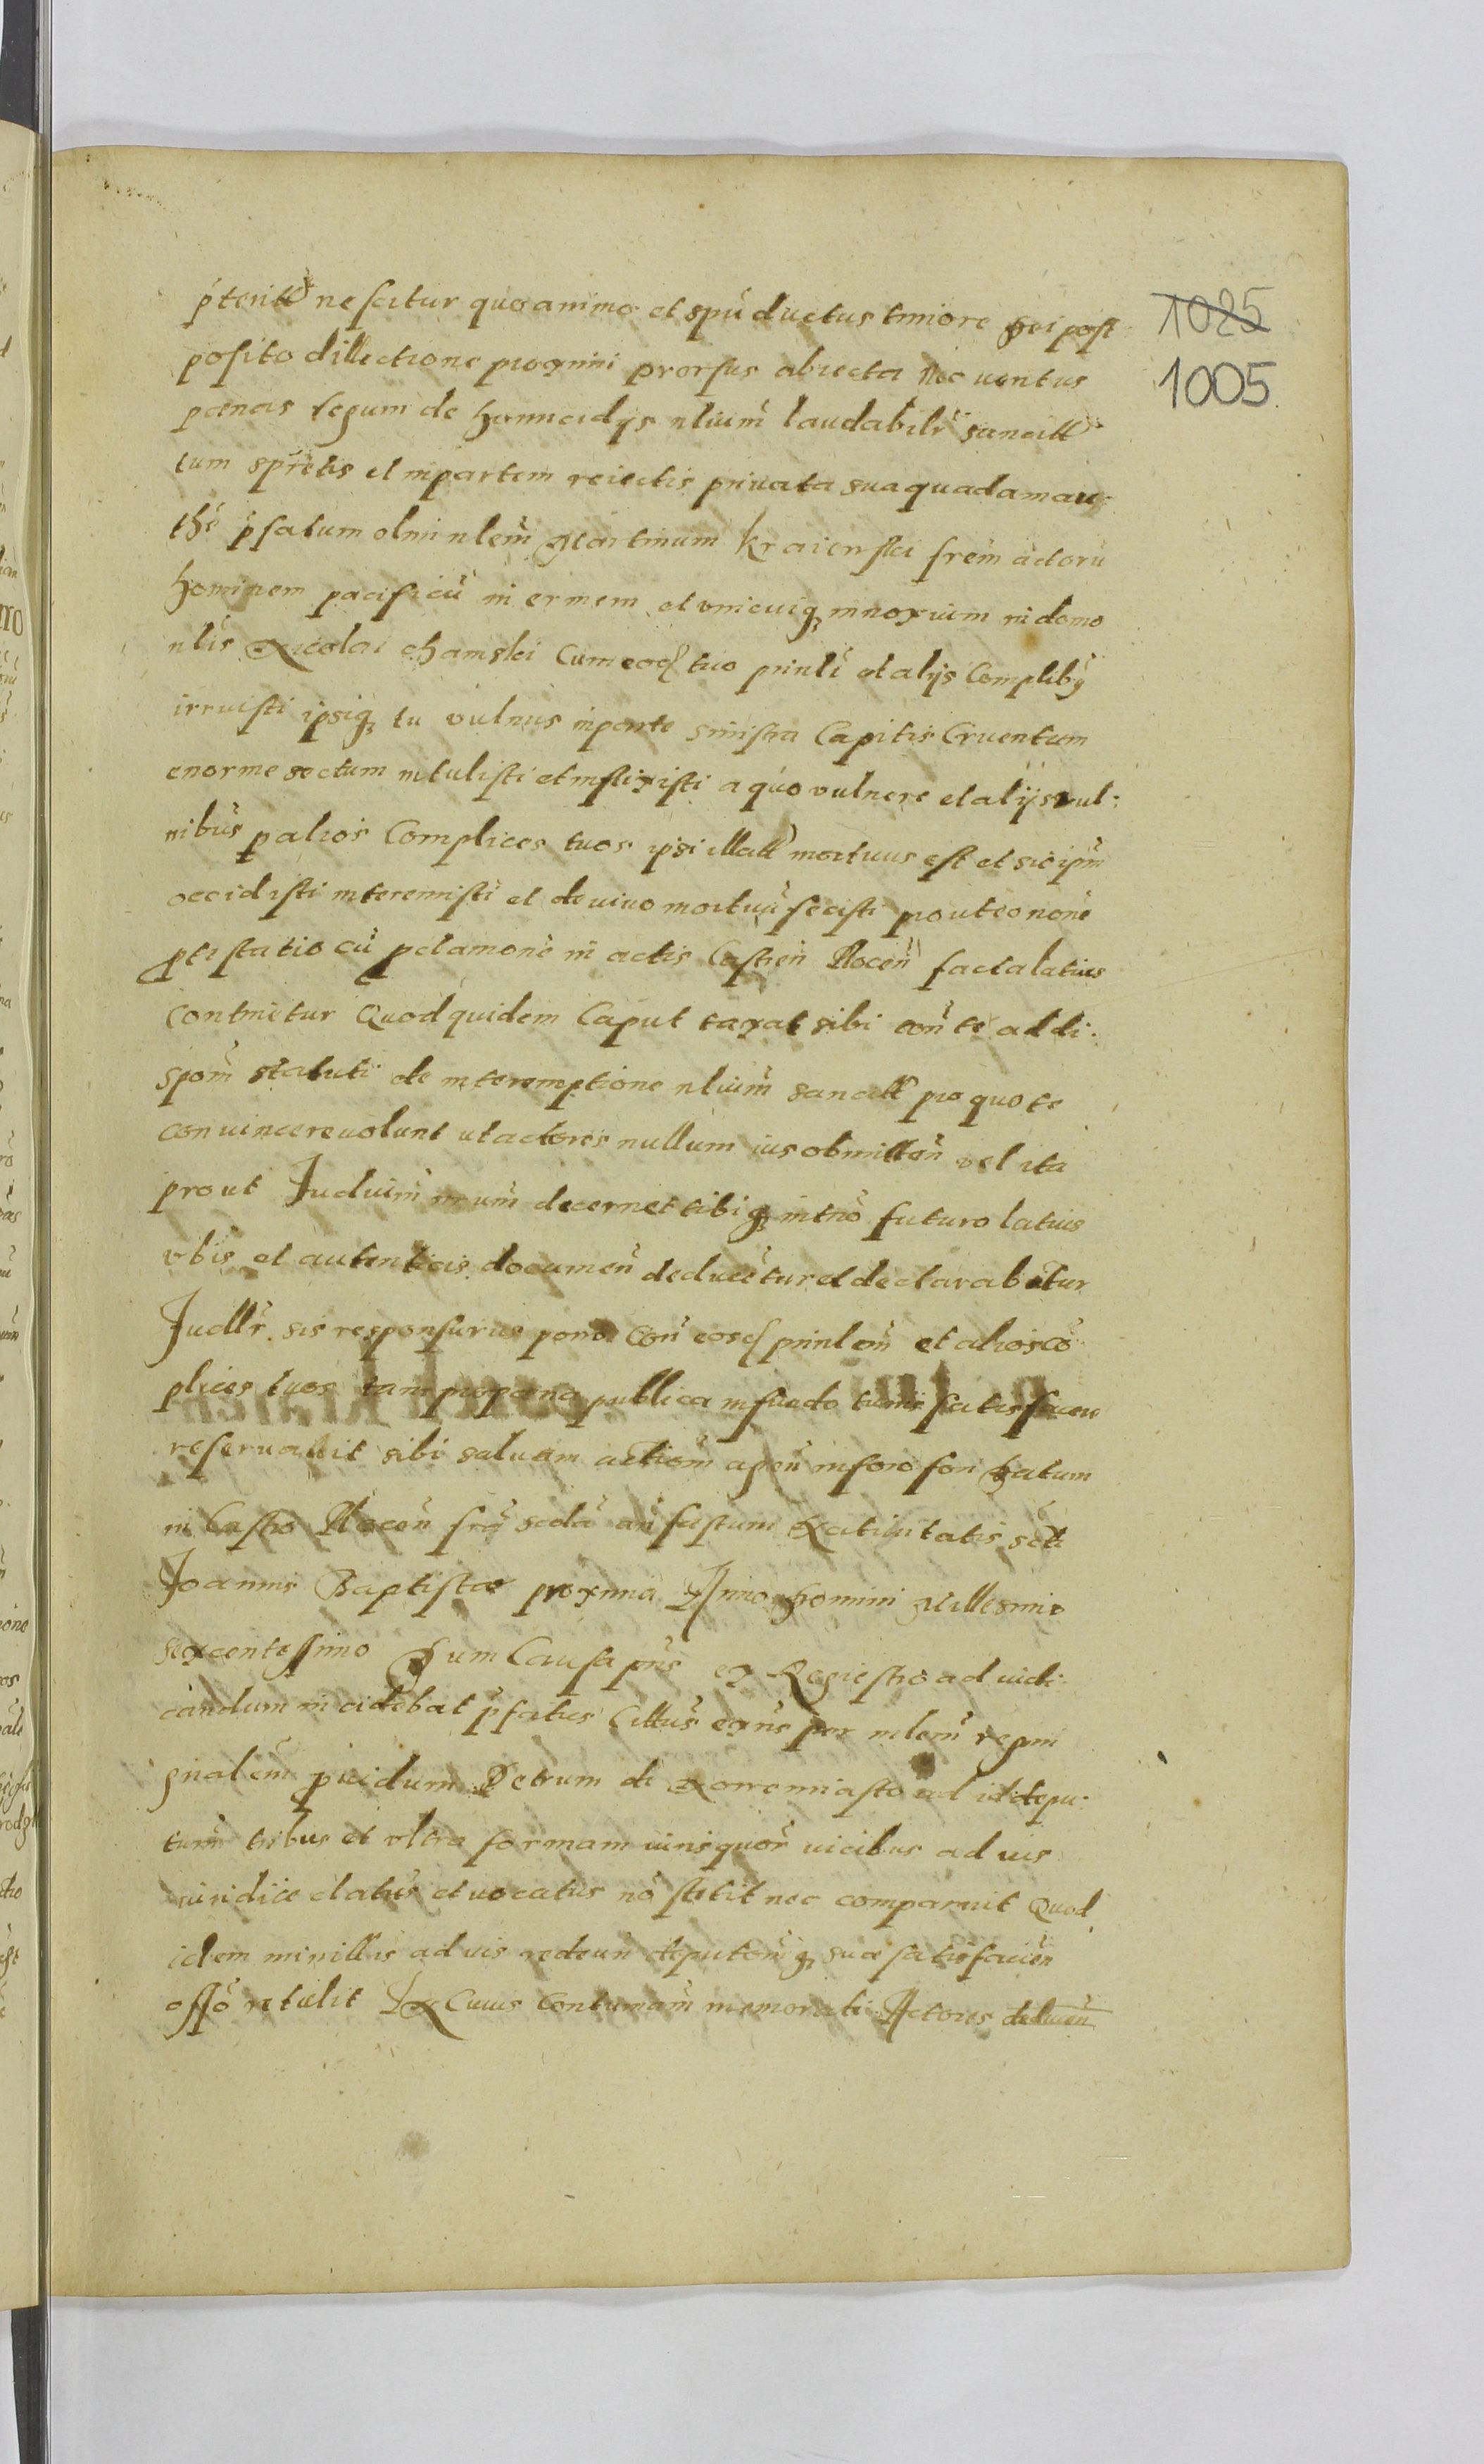 1025
1005
p̃teritt̃ nescitur quo animo et spũ ductus timore Dei post
posito dillectione proximi prorsus abiecta nec veritus
pœnas legum de homicidÿs nlium̃ laudabilr̃ sancitt̃
tum spretis et in partem reiectis privata sua quadam au-
thẽ p̃fatum olim nlem̃ Martinum Kraienski frem̃ actorũ
hominem pacificũ inermem et unicuiq innoxium in domo
nlis̃ Nicolai Chamski cum eod tuo prinli et alÿs complibq̃
irruisti ipsiq tu vulnus in parte sinistra Capitis Cruentum
enorme sectum intulisti et inflixisti a quo vulnere et alÿs vul-
nibus̃ p alios Complices tuos ipsi illatt̃ mortuus est et sic ipm̃
occidisti interemisti et de vivo mortuũ fecisti prout eo noñe
ptestatio cũ pclamoñe in actis Castreñ Płoceñ facta latius
continetur Quod quidem Caput taxat sibi coñ te ad di-
spom̃ statuti de interemptione nlium̃ sancitt̃ pro quo te
convincere volunt ut actores nullum ius obmitteñ vel ita
prout Iudium̃ decernet tibiq in tño futuro latius
vbis̃ et autenticis documeñ deducetur et declarabitur
Iudlr̃ sis responsurus coñ eosd prinlem̃ et alios cõ-
plices tuos tam pro pœna publica satisfacen
reservavit sibi salvam actiom̃ ageñ in foro fori Datum
in Castro Płoceñ frã scdã añ festum Nativitatis scti
Ioannis Baptistæ proxima Anno Domini Millesimo
sexcentesimo Dum Causa pñs ex Regiestro ad iudi-
candum incidebat p̃fatus Cittus̃ per nlem̃
gnalem̃ pvidum Petrum de ad id depu-
tum̃ tribus et vltra formam iuris quor̃ vicibus ad ius
citatus̃ et vocatus nõ stetit nec comparuit Quod
idem minillis ad ius redeuñ deputom̃q suæ satisfacieñ
offõ retulit Ex Cuius Contumam̃ memorati Actores